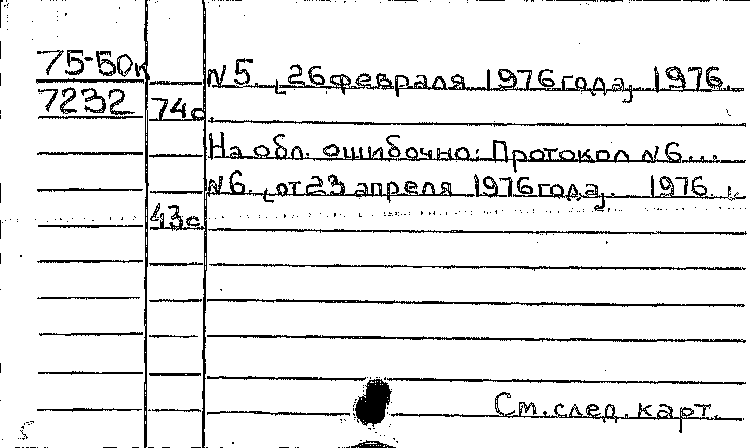 75-50к
N5. [26 февраля 1976 года]. 1976.
7232 74с.
На обл. ошибочно: Протокол N6...
N6. [от 23 апреля 1976 года]. 1976.
43с.
См. след. карт.
5